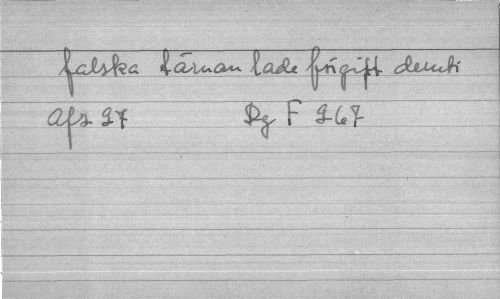 falska tärnan lade förgift deruti
Afz 97 Rg F 967